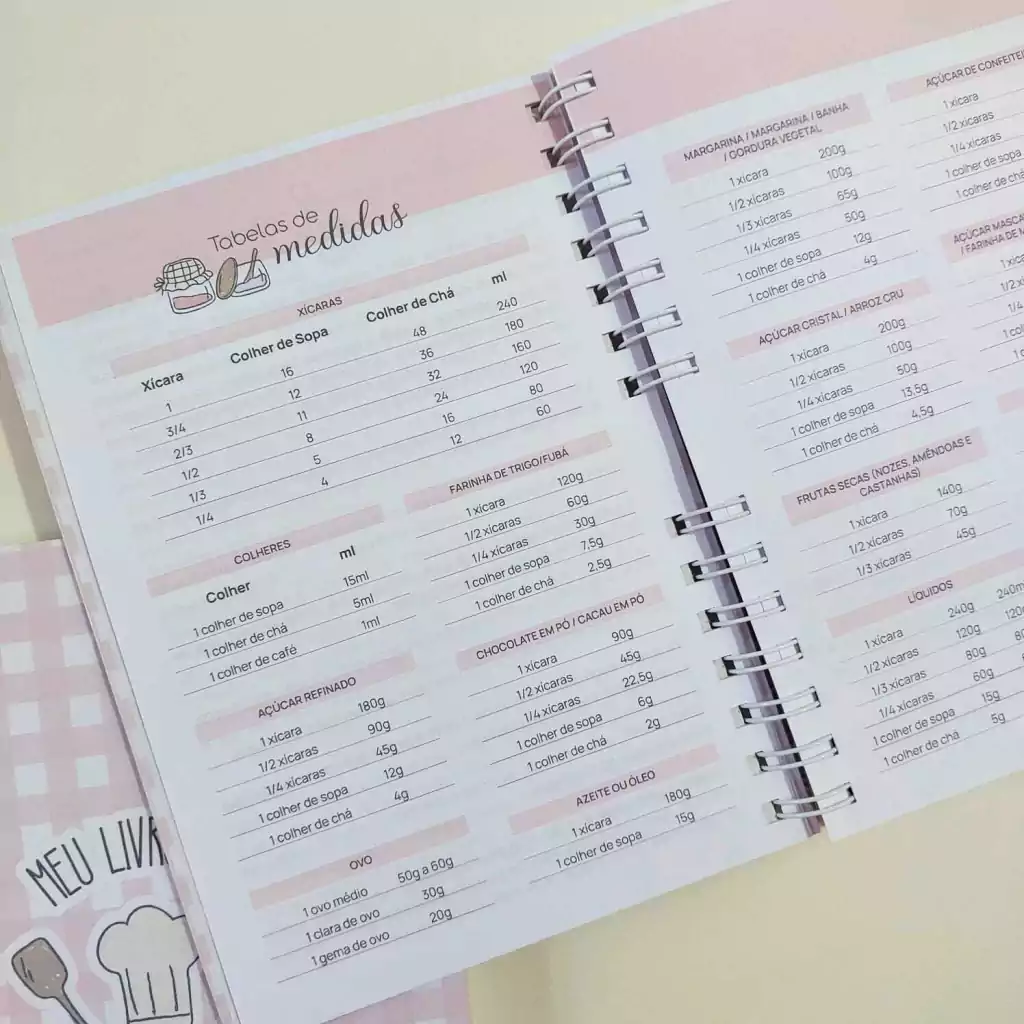 Tabelas de
medidas
XÍCARAS
Xícara Colher de Sopa Colher de Chá ml
1 16 48 240
3/4 12 36 180
2/3 11 32 160
1/2 8 24 120
1/3 5 16 80
1/4 4 12 60
COLHERES
Colher ml
1 colher de sopa 15ml
1 colher de chá 5ml
1 colher de café 1ml
AÇÚCAR REFINADO
1 xícara 180g
1/2 xícaras 90g
1/4 xícaras 45g
1 colher de sopa 12g
1 colher de chá 4g
OVO
1 ovo médio 50g a 60g
1 clara de ovo 30g
1 gema de ovo 20g
FARINHA DE TRIGO/FUBÁ
1 xícara 120g
1/2 xícaras 60g
1/4 xícaras 30g
1 colher de sopa 7,5g
1 colher de chá 2,5g
CHOCOLATE EM PÓ / CACAU EM PÓ
1 xícara 90g
1/2 xícaras 45g
1/4 xícaras 22,5g
1 colher de sopa 6g
1 colher de chá 2g
AZEITE OU ÓLEO
1 xícara 180g
1 colher de sopa 15g
MARGARINA / MARGARINA / BANHA
/ GORDURA VEGETAL
1 xícara 200g
1/2 xícaras 100g
1/3 xícaras 65g
1/4 xícaras 50g
1 colher de sopa 12g
1 colher de chá 4g
AÇÚCAR CRISTAL / ARROZ CRU
1 xícara 200g
1/2 xícaras 100g
1/4 xícaras 50g
1 colher de sopa 13,5g
1 colher de chá 4,5g
FRUTAS SECAS (NOZES, AMÊNDOAS E
CASTANHAS)
1 xícara 140g
1/2 xícaras 70g
1/3 xícaras 45g
LÍQUIDOS
1 xícara 240g 240m
1/2 xícaras 120g 120
1/3 xícaras 80g 80
1/4 xícaras 60g
1 colher de sopa 15g
1 colher de chá 5g
AÇÚCAR DE CONFEITEI
1 xícara
1/2 xícaras
1/4 xícaras
1 colher de sopa
1 colher de chá
AÇÚCAR MASCA
/ FARINHA DE
1 xíca
1/2 x
1/4
1 col
1 c
MEU LIVR